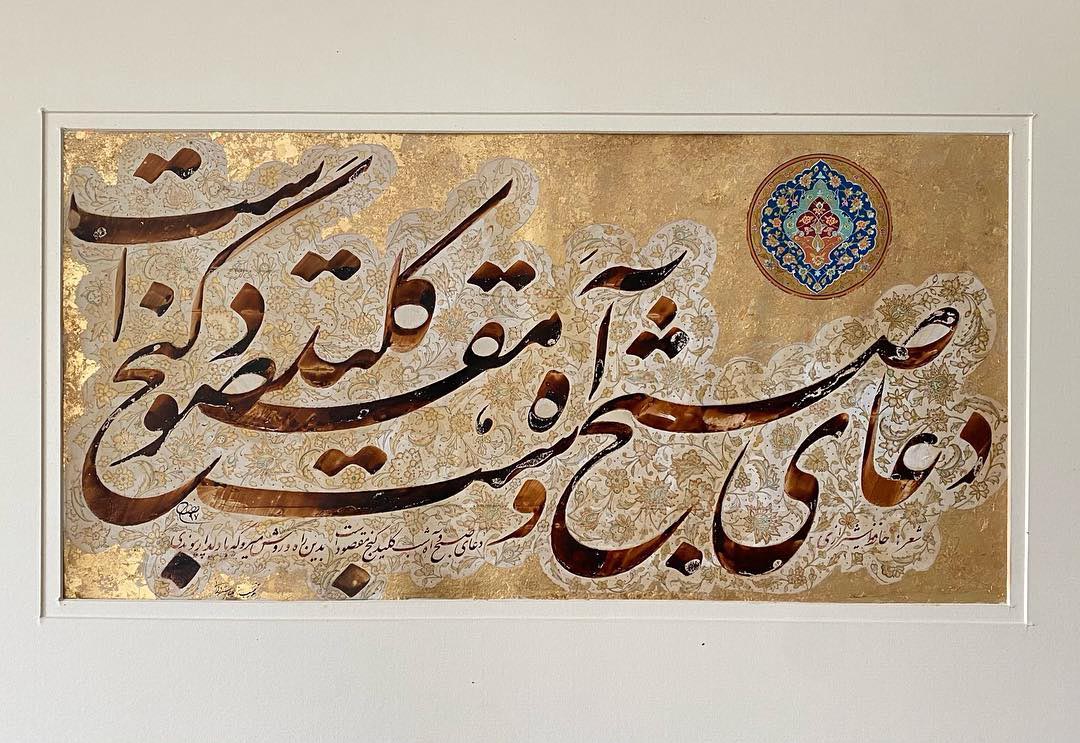 دعای صبح و آه شب کلید گنج مقصود است
شعر: حافظ شیرازی
دعای صبح و آه شب کلید گنج مقصودست بدین راه و روش میرو که با دلدار پیوندی
۹۷